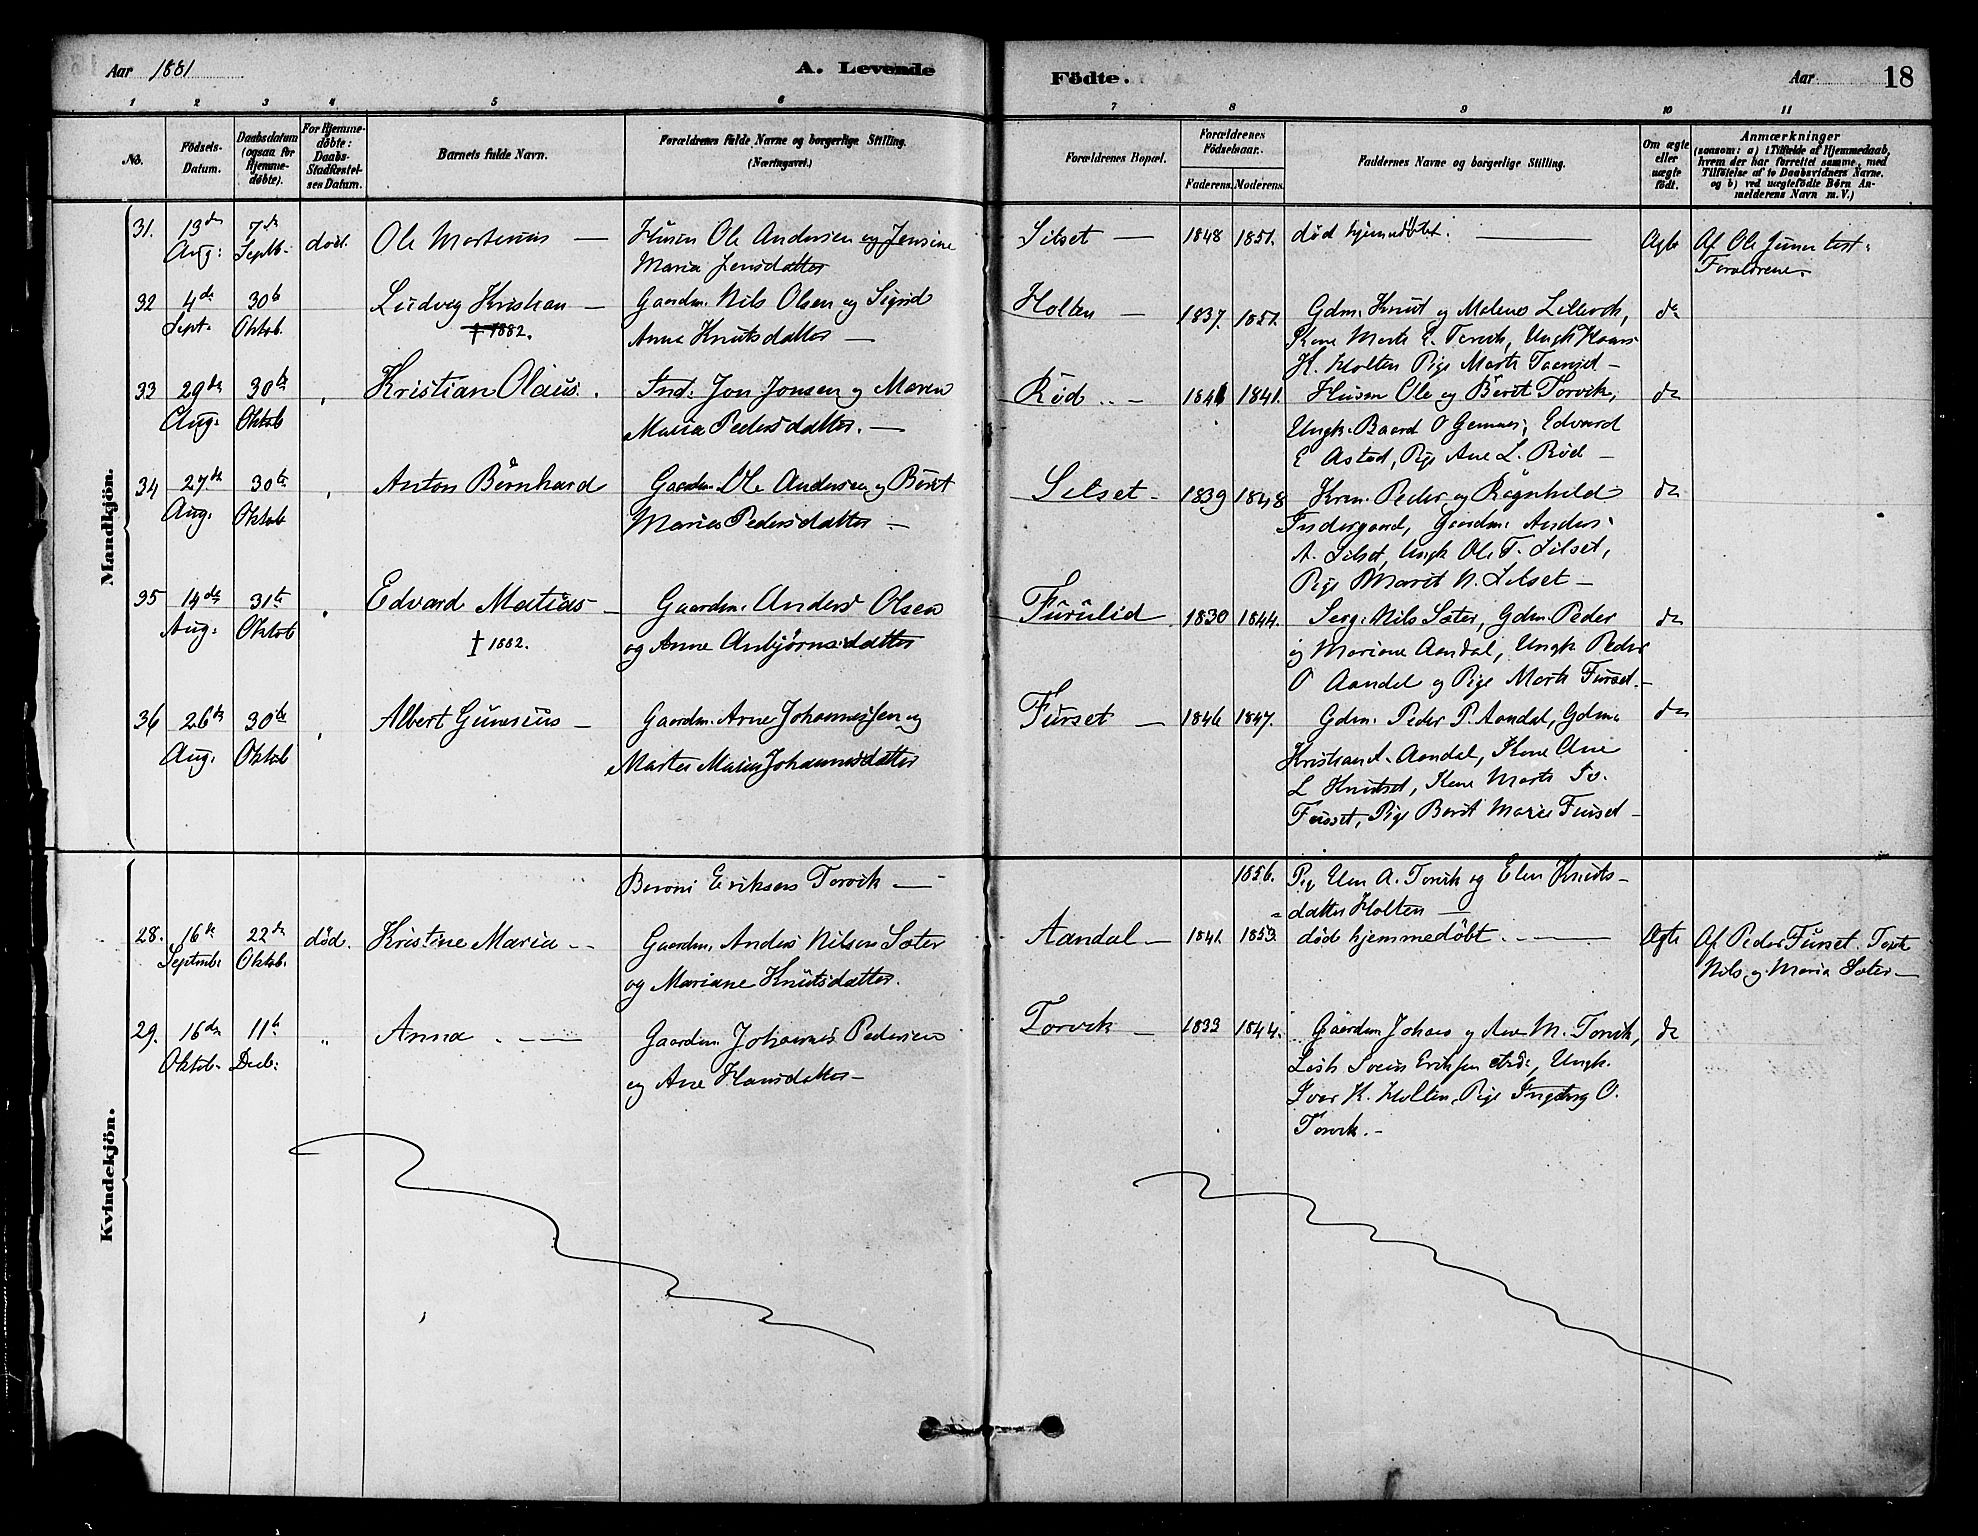 Aar 1881
A. Levende
Födte.
Aar
18
1 2 3 4 5 6 7 8 9 10 11
No.
Födsels-Datum.
Daabsdatum (ogsaa for Hjemme-döbte).
For Hjemme-döbte: Daabs-Stadfæstel-ses Datum.
Barnets fulde Navn.
Forældrenes fulde Navne og borgerlige Stilling. (Næringsvei.)
Forældrenes Bopæl.
Forældrenes Födselsaar.
Faderens. Moderens.
Faddernes Navne og borgerlige Stilling.
Om ægte eller uægte födt.
Anmærkninger
(saasom: a) i Tilfælde af Hjemmedaab,
hvem der har forrettet samme, med
Tilföielse af to Daabsvidners Navne.
og b) ved uægtefödte Börn An-
melderens Navn m. V.)
Mandkjön.
31. 13de 7de død. Ole Martinus — Husm Ole Andersen og Jensine Silset — 1848 1851. død hjemmedöbt. — Ægte Af Ole
Aug: Septb. Maria Jensdatter Forældrene.
32 4de 30te Ludvig Kristian — Gaardm. Nils Olsen og Sigrid Holten — 1837. 1851. Gdm. Knut og Malene Lillevik, do
Sept. Oktob. † 1882. Anne Knutsdatter — Kone Marte E. Torvik, Ungk Hans
K. Holten Pige Marte
33 29de 30te " Kristian Olaus. Ind. Jon Jonsen og Maren Röd — 1841 1841. Husm Ole og Berit Torvik, do
Aug. Oktob Maria Pedersdatter. — Ungk. Baard O Gemnes, Edvard
E Astad, Pige Ane L. Röd —
34 27de 30te " Anton Bernhard Gaardm. Ole Andersen og Beret Silset — 1839 1848 Peder og Ragnhild do
Aug. Oktob Maria Pedersdatter — Indergaard, Gaardm. Anders
A. Silset, Ungk Ole T. Silset,
Pige Marit N. Silset —
35 14de 31te " Edvard Matias — Gaardm. Anders Olsen Furulid 1830 1844. Serg. Nils Sæter, Gdm. Peder do
Aug: Oktob † 1882. og Anne Anbjørnsdatter og Mariane Aandal, Ungk Peder
O Aandal og Pige Marte Furset —
36 26de 30te " Albert Gunerius — Gaardm. Arne Johannessen og Furset — 1846 1847. Gdm. Peder P. Aandal, Gdm. do
Aug. Oktob Marte Maria Johannesdatter Kristian A. Aandal, Kone Ane
L Knutset, Kone Marte
Furset, Pige Berit Marie Furset —
Kvindekjön.
Beroni Eriksens Torvik — 1856. Pig Elen A. Torvik og Elen Knuts-
datter Holten —
28. 16de 22de död. Kristine Maria — Gaardm. Anders Nilsen Sæter Aandal — 1841. 1853. död hjemmedöbt. — Ægte Af Peder Furset. Test
Septemb. Oktob. og Mariane Knutsdatter. Nils og Maria Sæter —
29. 16de 11te " Anna — Gaardm. Johannes Pedersen Torvik — 1833 1844. Gaardm Johans og Ane M. Torvik, do
Oktob. Decb: og Ane Hansdatter — Sveins Eriksen , Ungk.
Iver K. Holten, Pige Ingeborg O.
Torvik. —